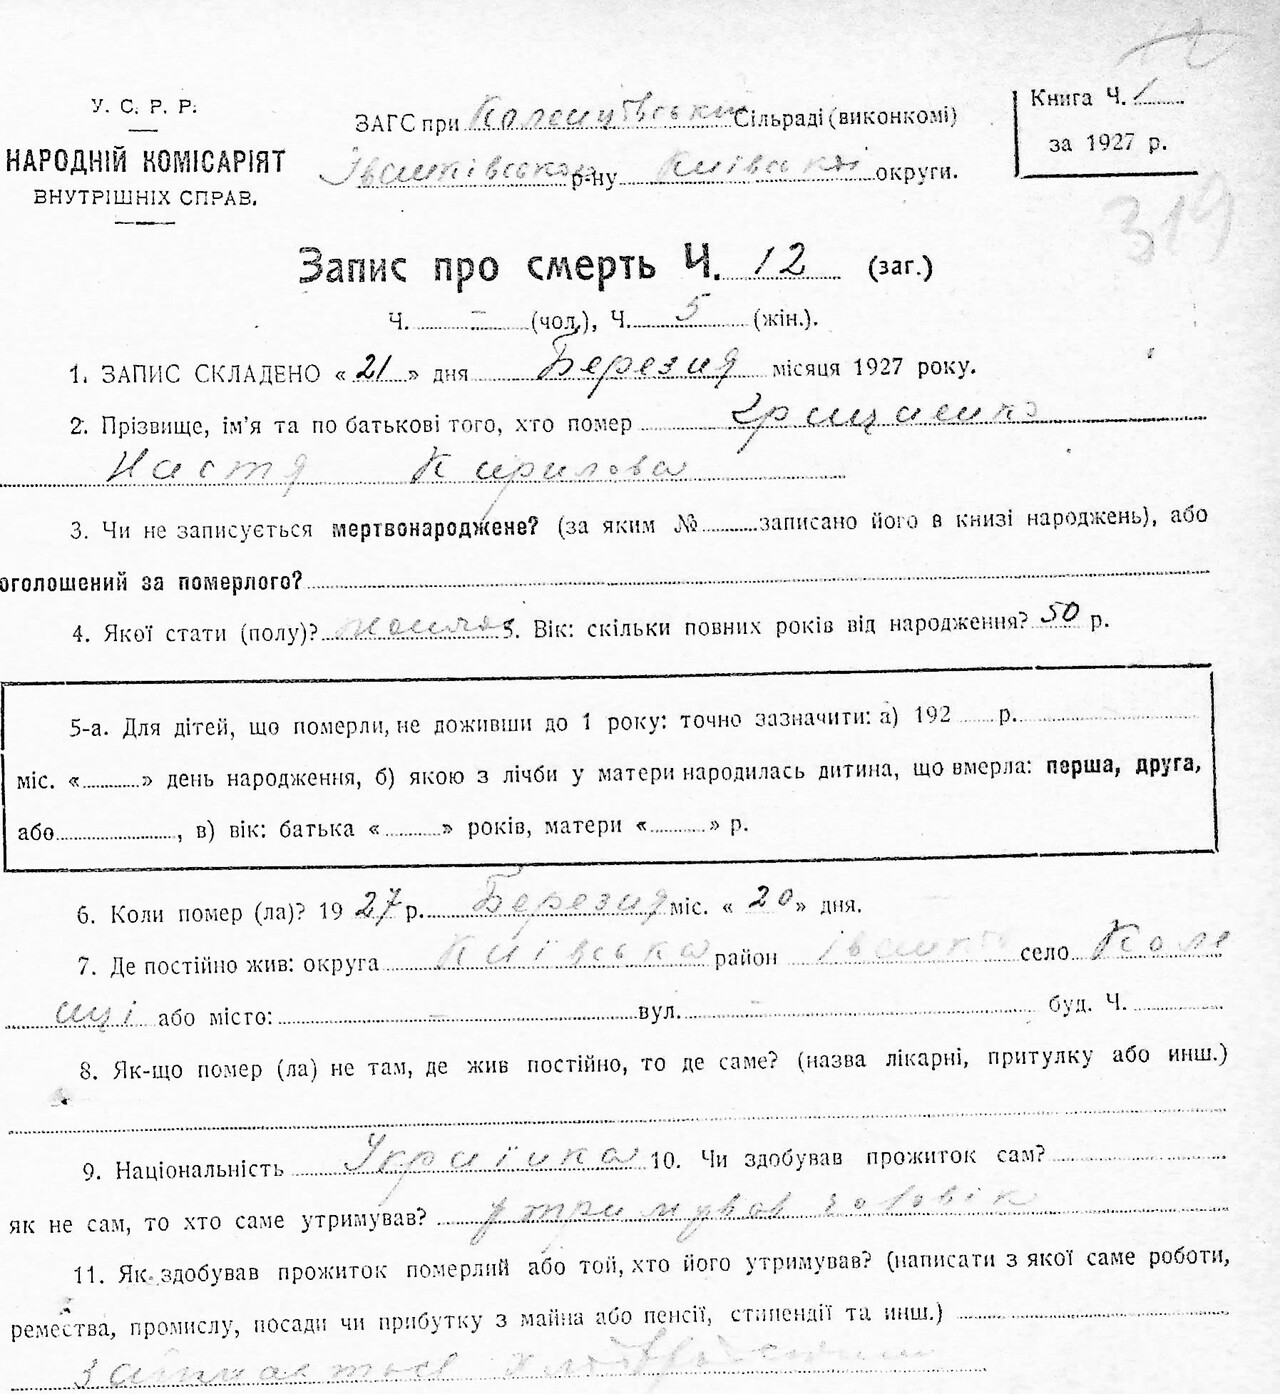 У. С. Р. Р.
НАРОДНІЙ КОМІСАРІЯТ
ВНУТРІШНІХ СПРАВ.
ЗАГС при Коленцівській Сільраді (виконкомі)
Іванківського р-ну Київської округи.
Книга Ч. 1
за 1927 р.
319
Запис про смерть Ч. 12 (заг.)
Ч. – (чол.), Ч. 5 (жін.).
1. ЗАПИС СКЛАДЕНО «21» дня Березня місяця 1927 року.
2. Прізвище, ім'я та по батькові того, хто помер Грищенко
Настя Кирилова
3. Чи не записується мертвонароджене? (за яким № записано його в книзі народжень), або
оголошений за померлого?
4. Якої стати (полу)? 5. Вік: скільки повних років від народження? 50 р.
5-а. Для дітей, що померли, не доживши до 1 року: точно зазначити: а) 192 р.
міс. « » день народження, б) якою з лічби у матери народилась дитина, що вмерла: перша, друга,
або , в) вік: батька « » років, матери « » р.
6. Коли помер (ла)? 1927 р. Березня міс. «20» дня.
7. Де постійно жив: округа Київська район Іванків село Коле
нці або місто: – вул. – буд. Ч.
8. Як-що помер (ла) не там, де жив постійно, то де саме? (назва лікарні, притулку або инш.)
9. Національність Українка 10. Чи здобував прожиток сам?
як не сам, то хто саме утримував? утримував чоловік
11. Як здобував прожиток померлий або той, хто його утримував? (написати з якої саме роботи,
ремества, промислу, посади чи прибутку з майна або пенсії, стипендії та инш.)
займається